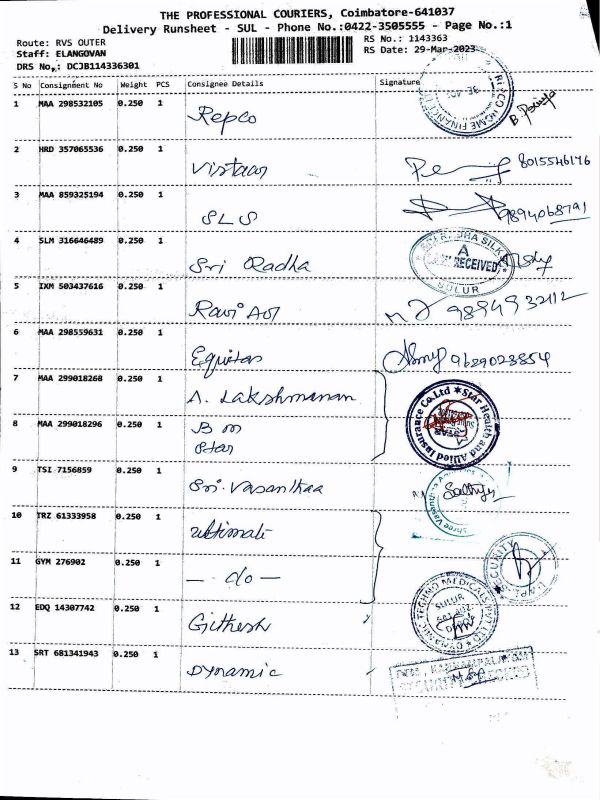 THE PROFESSIONAL COURIERS, Coimbatore-641037
Delivery Runsheet - SUL - Phone No.:0422-3505555 - Page No.:1
Route: RVS OUTER RS No.: 1143363
Staff: ELANGOVAN RS Date: 29-Mar-2023
DRS No.: DCJB114336301
S No Consignment No Weight PCS Consignee Details Signature
1 MAA 298532105 0.250 1 Repco
REPCO HOME FINANCE
2 HRD 357065536 0.250 1 Vistaar 8015546176
3 MAA 859325194 0.250 1 SLS 9894068791
4 SLM 316646489 0.250 1 Sri Radha
SILK
RECEIVED
SULUR
5 IXM 503437616 0.250 1 Ravi 9894932112
6 MAA 298559631 0.250 1 Equitas 9629023854
7 MAA 299018268 0.250 1 A. Lakshmanan
Star Health and Allied Insurance Co.Ltd
8 MAA 299018296 0.250 1 B M
Star
9 TSI 7156859 0.250 1 Sri. Vasanthaa
10 TRZ 61333958 0.250 1 Ultimate
11 GYM 276902 0.250 1 — do —
SECURITY
12 EDQ 14307742 0.250 1 Githesh
DYNAMIC TECHNO MEDICALS
SULUR
13 SRT 681341943 0.250 1 Dynamic